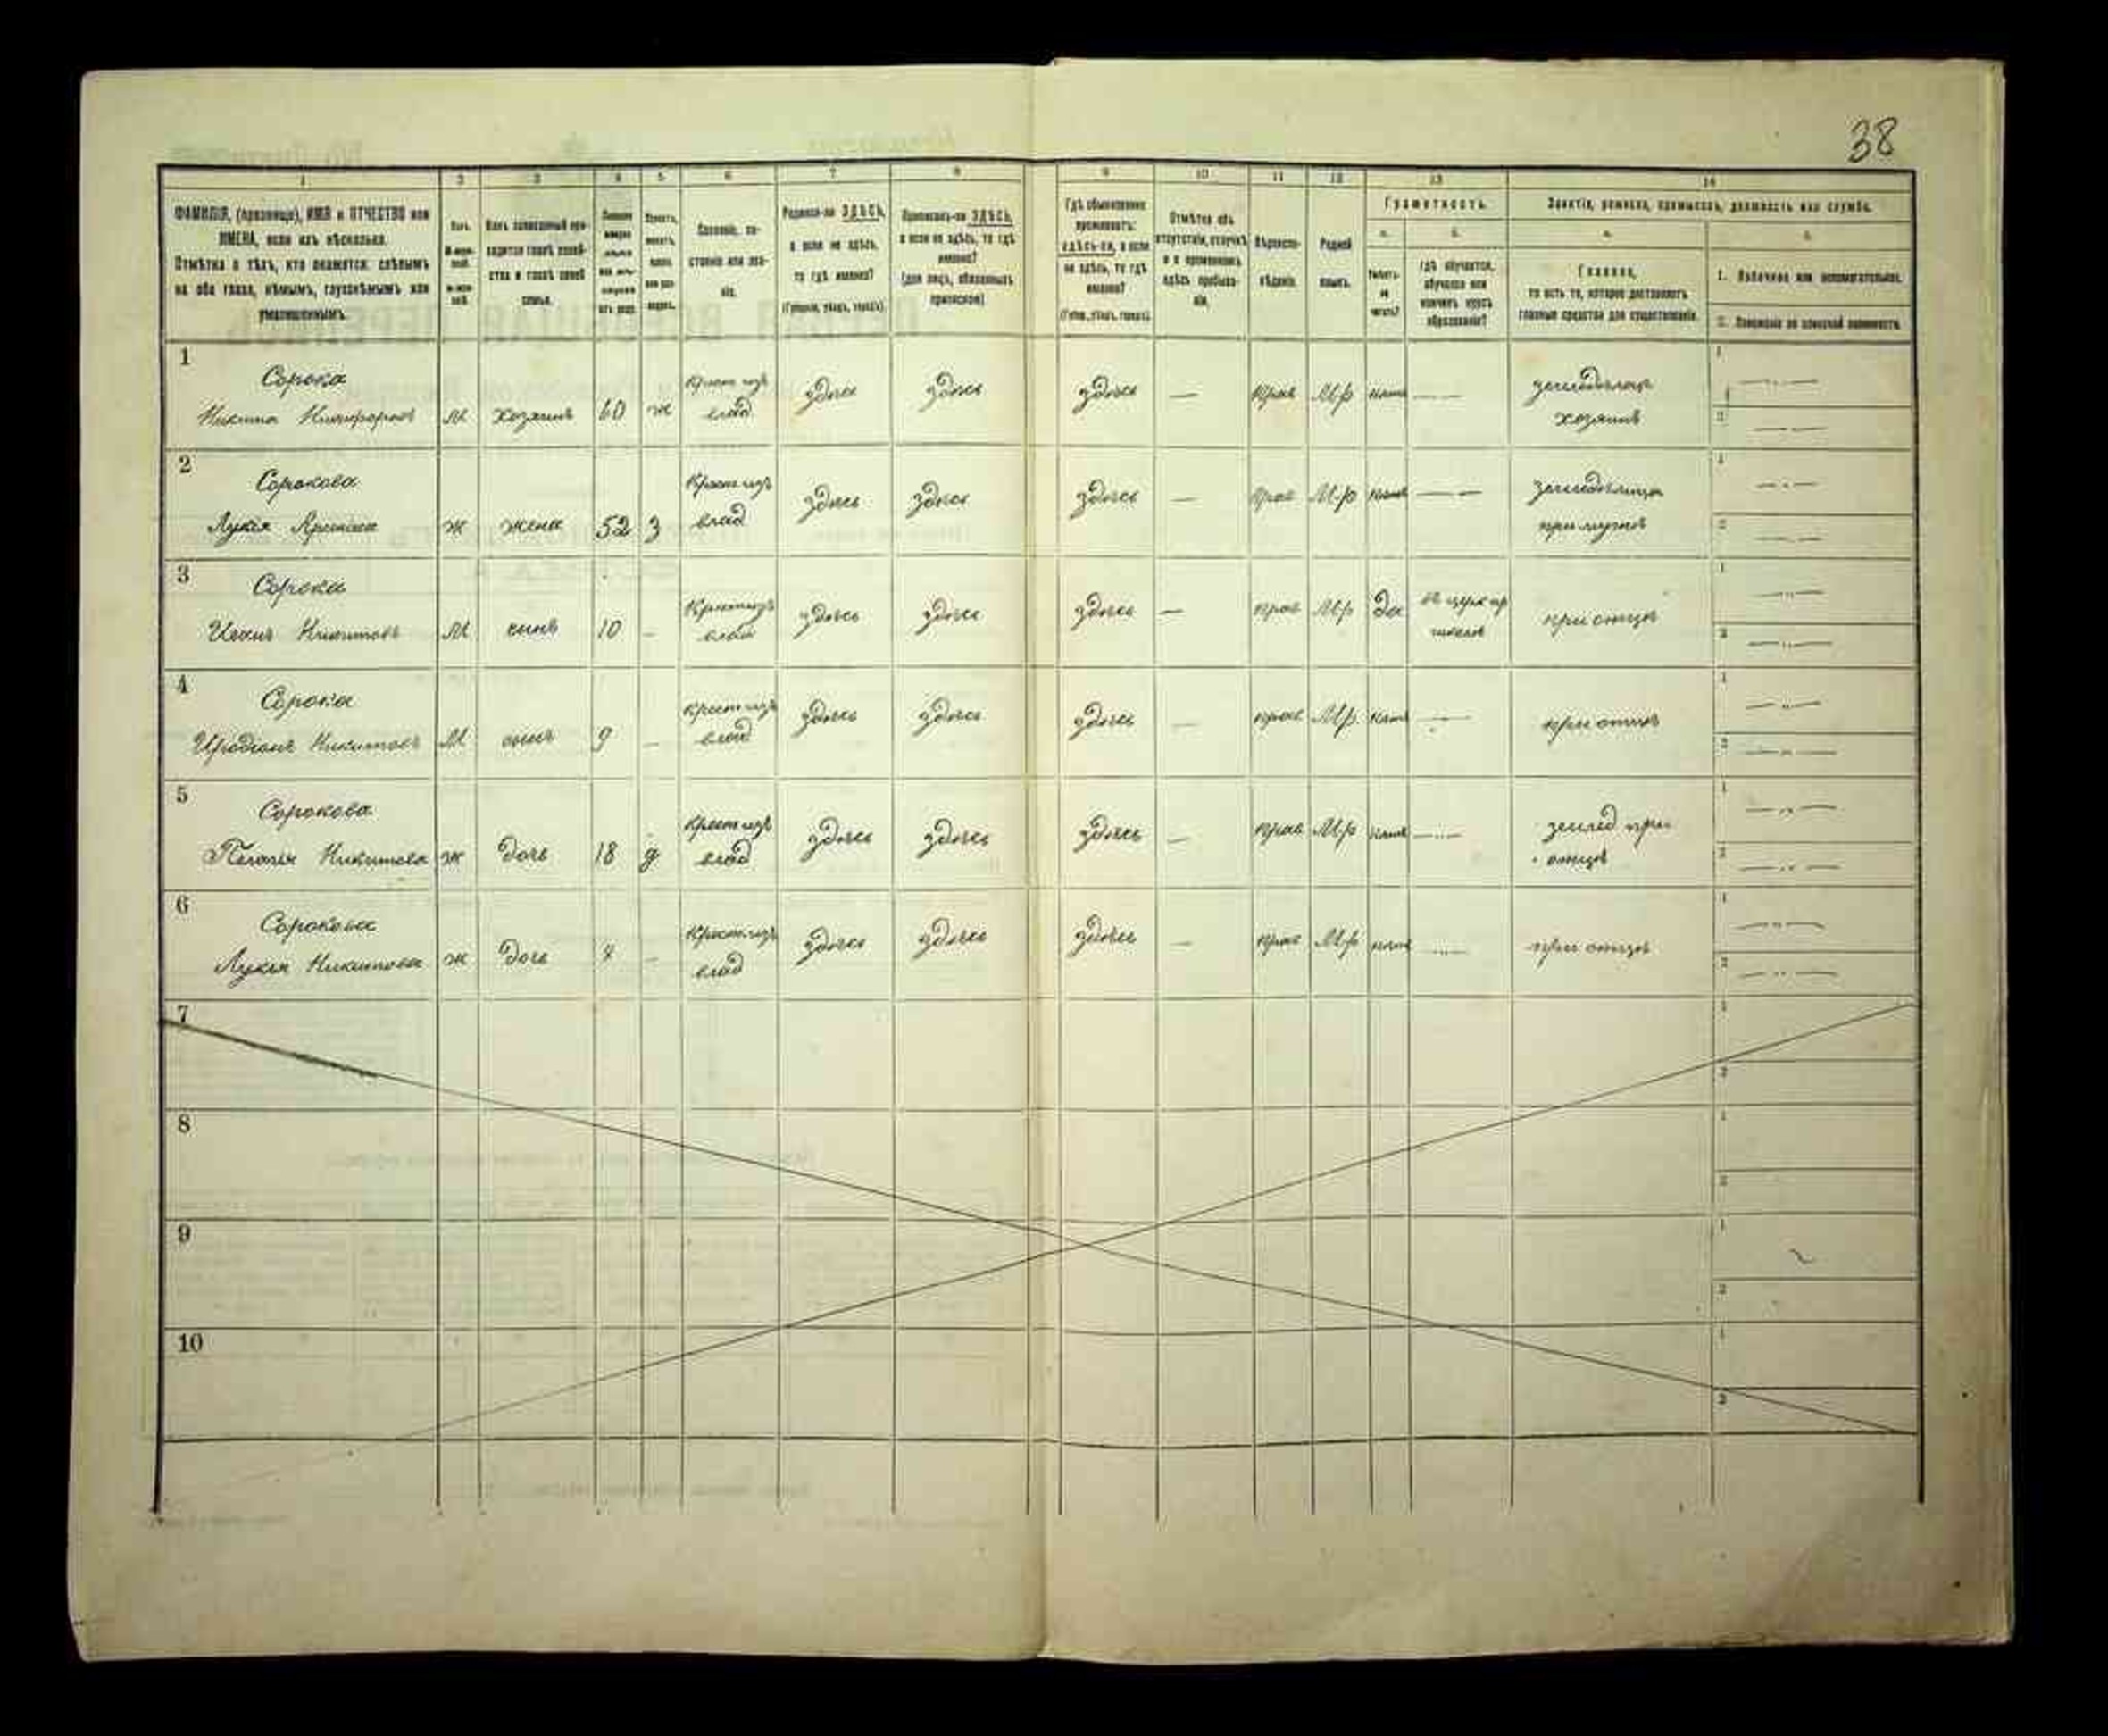 38
1 2 3 4 5 6 7 8 9 10 11 12 13 14
ФАМИЛІЯ, (прозвище), ИМЯ и ОТЧЕСТВО или
ИМЕНА, если ихъ нѣсколько.
Отмѣтка о тѣхъ, кто окажется: слѣпымъ
на оба глаза, нѣмымъ, глухонѣмымъ или
умалишеннымъ.
Полъ.
М-муж-
ской.
Ж-жен-
скій.
Какъ записанный при-
ходится главѣ хозяй-
ства и главѣ своей
семьи.
Сословіе, со-
стояніе или зва-
ніе.
Родился-ли ЗДѢСЬ,
а если не здѣсь,
то гдѣ именно?
(Губернія, уѣздъ, городъ).
Приписанъ-ли ЗДѢСЬ,
а если не здѣсь, то гдѣ
именно?
(для лицъ, обязанныхъ
припискою)
Гдѣ обыкновенно
проживаетъ:
здѣсь-ли, а если
не здѣсь, то гдѣ
именно?
(Губер., уѣздъ, городъ).
Отмѣтка объ
отсутствіи, отлучкѣ
и о временномъ
здѣсь пребыва-
ніи.
Вѣроиспо-
вѣданіе.
Родной
языкъ.
Грамотность.
а.
Умѣетъ-
ли
читать?
б.
Гдѣ обучается,
обучался или
кончилъ курсъ
образованія?
Занятіе, ремесло, промыселъ, должность или служба.
а.
Главное,
то есть то, которое доставляетъ
главныя средства для существованія.
б.
1. Побочное или вспомогательное.
2. Положеніе по воинской повинности.
1
Сорока
Никита Никифоровъ М хозяинъ 60 ж
крест изъ
влад здѣсь здѣсь здѣсь — Прав М.р нѣтъ —
земледѣлецъ
хозяинъ
2
Сорокова
Лукія ж жена 52 З
Крест изъ
влад здѣсь здѣсь здѣсь — прав М.р нѣтъ —
при мужѣ
3
Сорока
Никитовъ М сынъ 10 —
Крест изъ
влад здѣсь здѣсь здѣсь — прав М.р да
въ церк пр
школѣ
при отцѣ
4
Сорока
Иродіонъ Никитовъ М сынъ 9 —
крест изъ
влад здѣсь здѣсь здѣсь — прав М.р нѣтъ —
при отцѣ
5
Сорокова
Никитова ж дочь 18 д
крест изъ
влад здѣсь здѣсь здѣсь — прав М.р нѣтъ —
землед при
отцѣ
6
Сорокова
Лукія Никитова ж дочь —
Крест изъ
влад здѣсь здѣсь здѣсь — прав М.р нѣтъ
при отцѣ
7
8
9
10